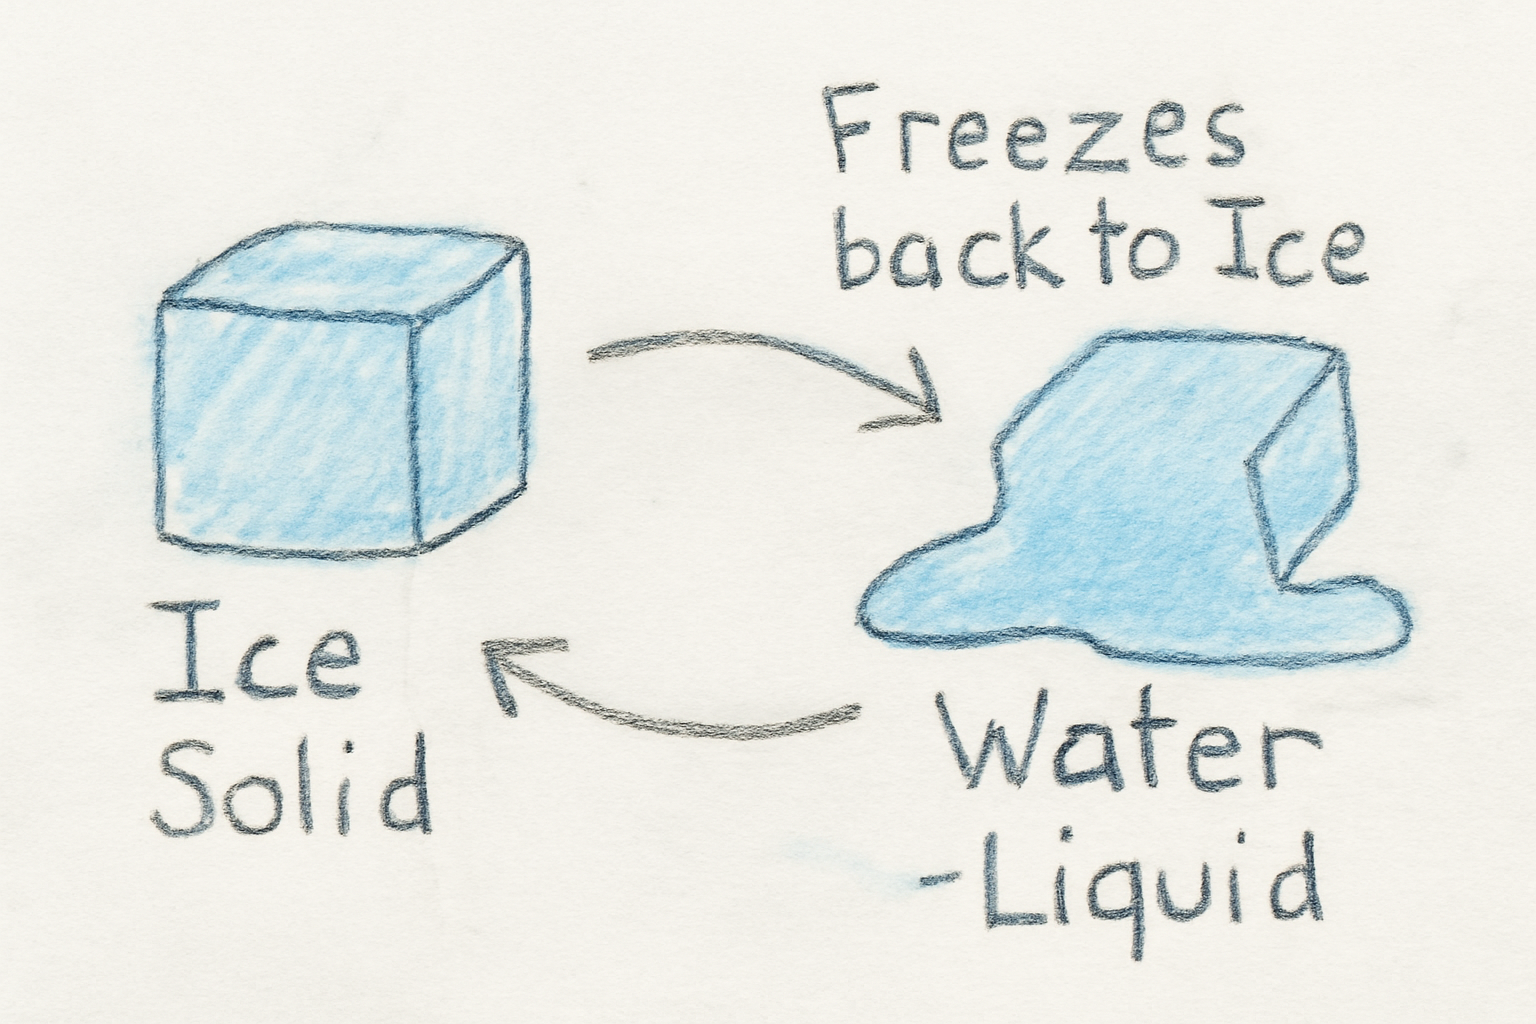 Freezes
back to Ice
Ice
Solid
Water
-Liquid